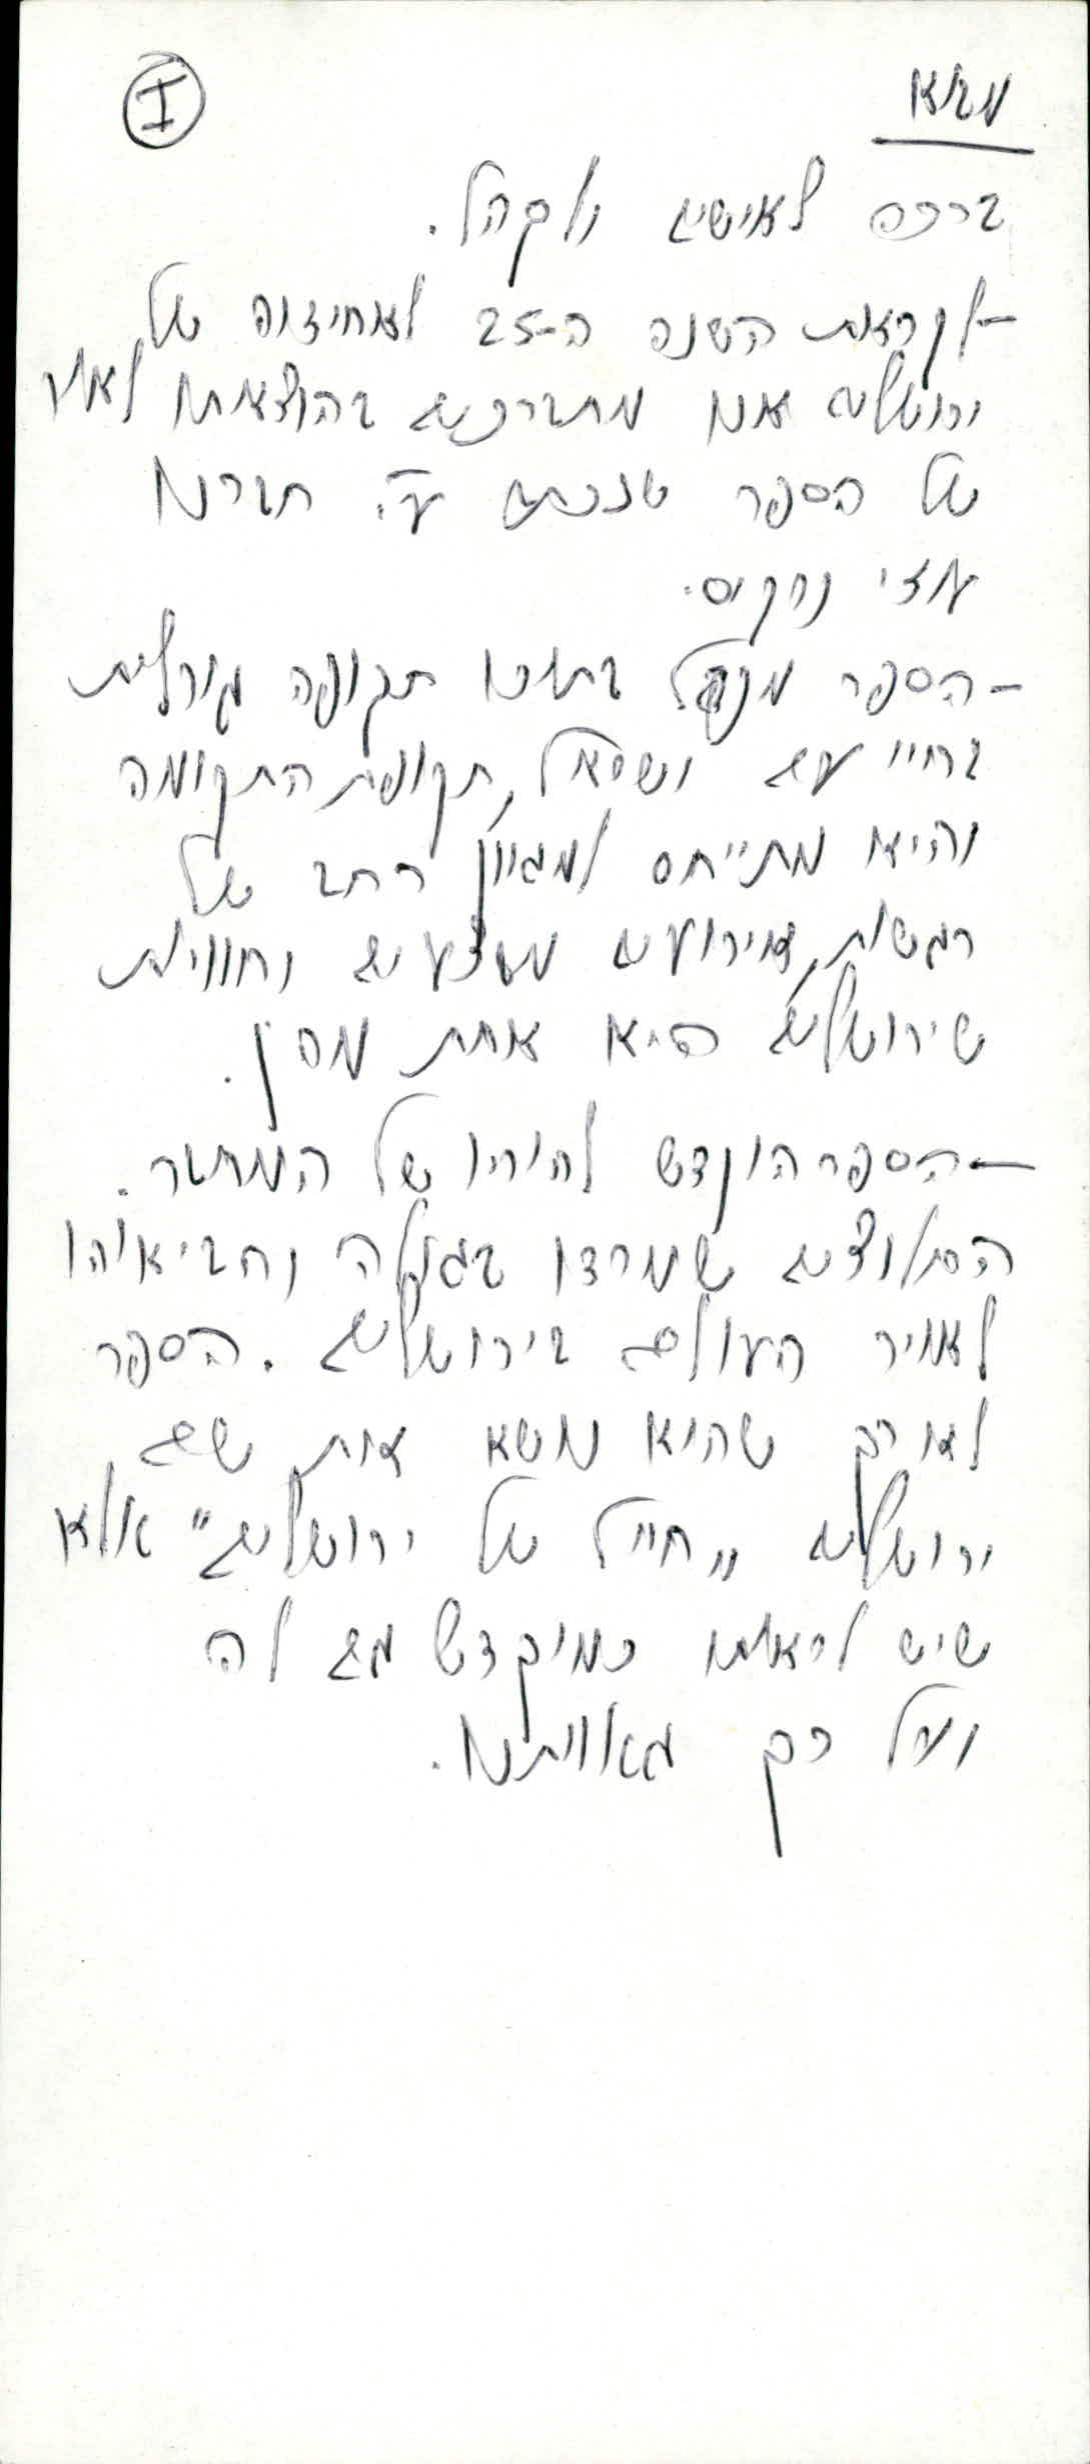 מבוא
I
ברכה לאישים ולקהל.
- לקראת השנה ה-25 לאחודה של
ירושלים אנו מתברכים בהוצאתו לאור
של הספר שנכתב ע"י חברנו
עוזי נרקיס.
- הספר מנקז בתוכו תקופה גורלית
בחיי עם ישראל, תקופת התקומה
והוא מתייחס למגוון רחב של
רגשות, אירועים מבצעים וחוויות
שירושלים היא אחת מהן.
- הספר הוקדש להוריו של המחבר.
החלוצים שמרדו בגולה והביאוהו
לאויר העולם בירושלים. הספר
לא רק שהוא נושא את שם
ירושלים "חייל של ירושלים" אלא
שיש לראותו כמוקדש גם לה
ועל כך גאוותנו.